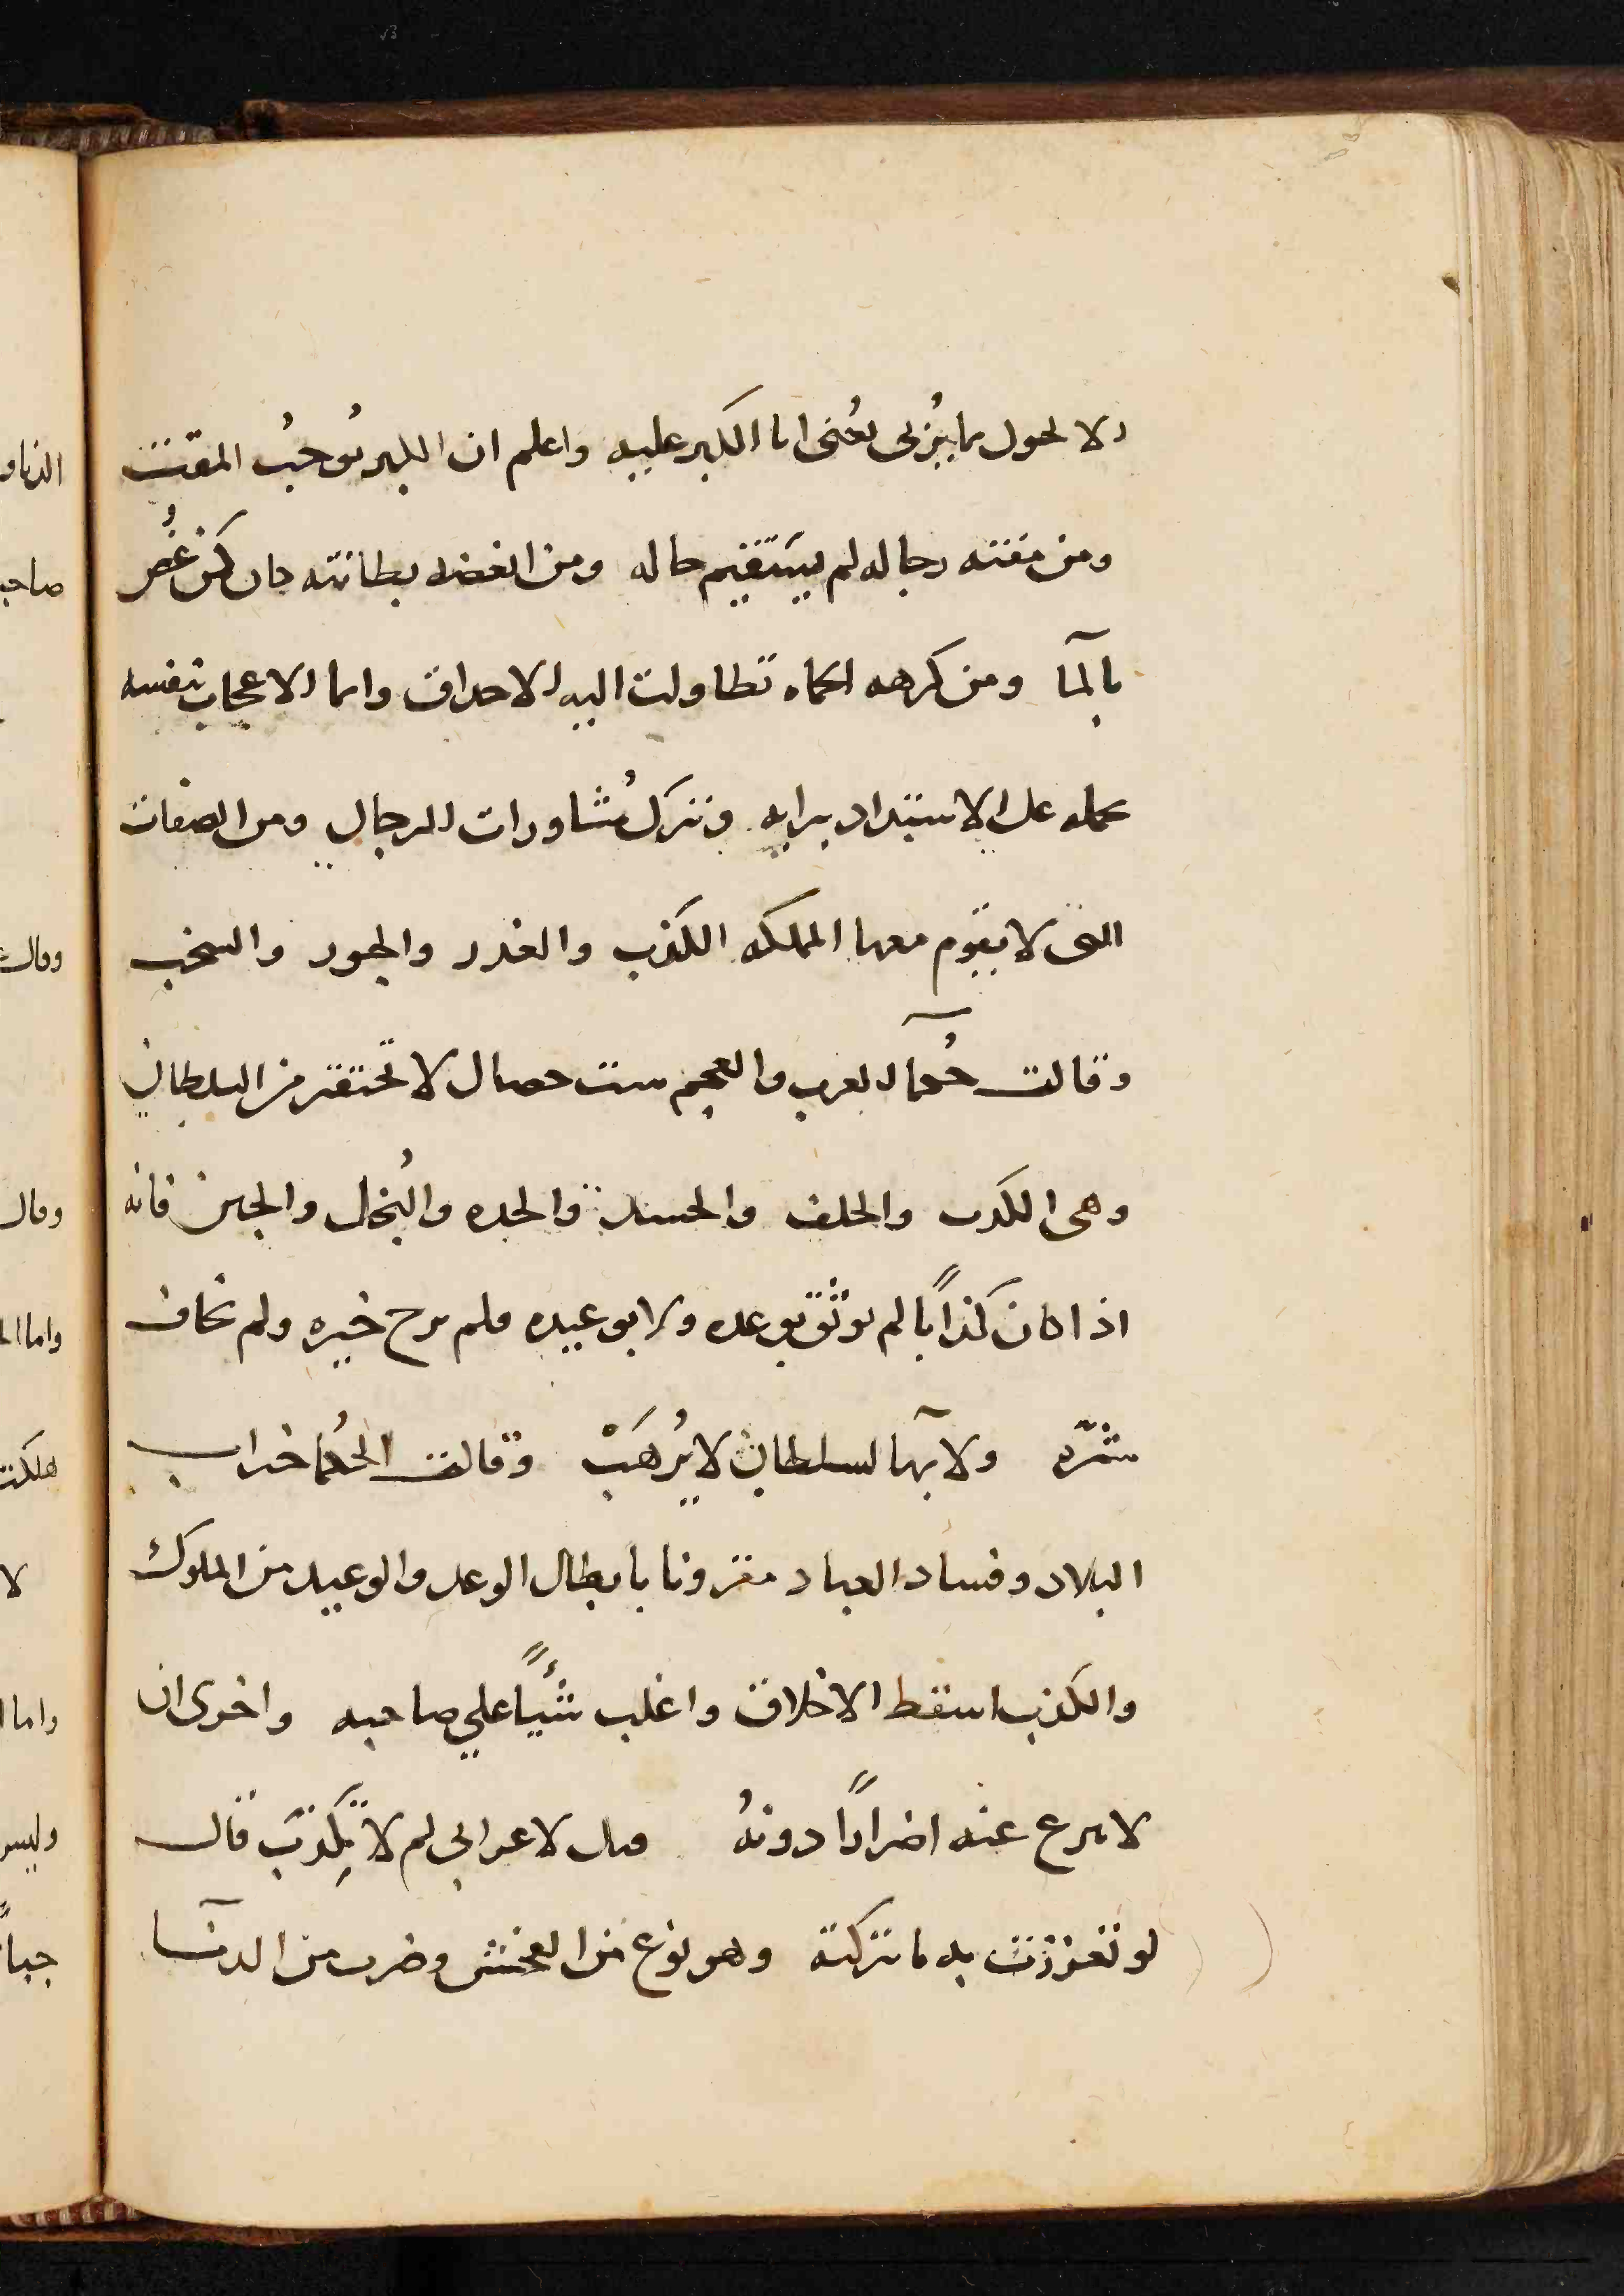 ولا لحول ما يزلى بعنى اما الكبر عليه واعلم ان الكبر يوجبُ المقت
ومن مقته رجاله لم يستقيم حاله ومن ابغضه بطانته كان كمن غُص
بالمآ ومن كرهه الحماه تطاولت اليه الاحداق واما الاعجاب بنفسه
يحمله على الاستبداد برايه وتترك مُشاورات الرجال ومن الصفات
التى لا يقوم معها المملكه الكذب والغدر والجور والسخب
وقالت حُكمآ العرب والعجم ست خصال لا تحتقر من السلطان
وهى الكدب والخلف والحسد والحده والبُخل والجبن فانه
اذا كان كذاباً لم يوثق بوعده ولا بوعيده فلم يرج خيره ولم يخاف
شرّه ولا بهآ لسلطان لا يُرهَبْ وقالت الحُكما خراب
البلاد وفساد العباد مقرونا بابطال الوعد والوعيد من الملوك
والكذب اسقط الاخلاق واغلب شئياً علي صاحبه واخرى ان
لا يرع عنه اضراراً دونهُ قيل لاعرابى لم لا تكذبَ قال
لو تعززت به ما تركته وهو نوع من الفحش وضرب من الدنآ
الذيا و
صاحب
وقالت
وقال
واما ا
هلكت
لا
واما ا
وليس